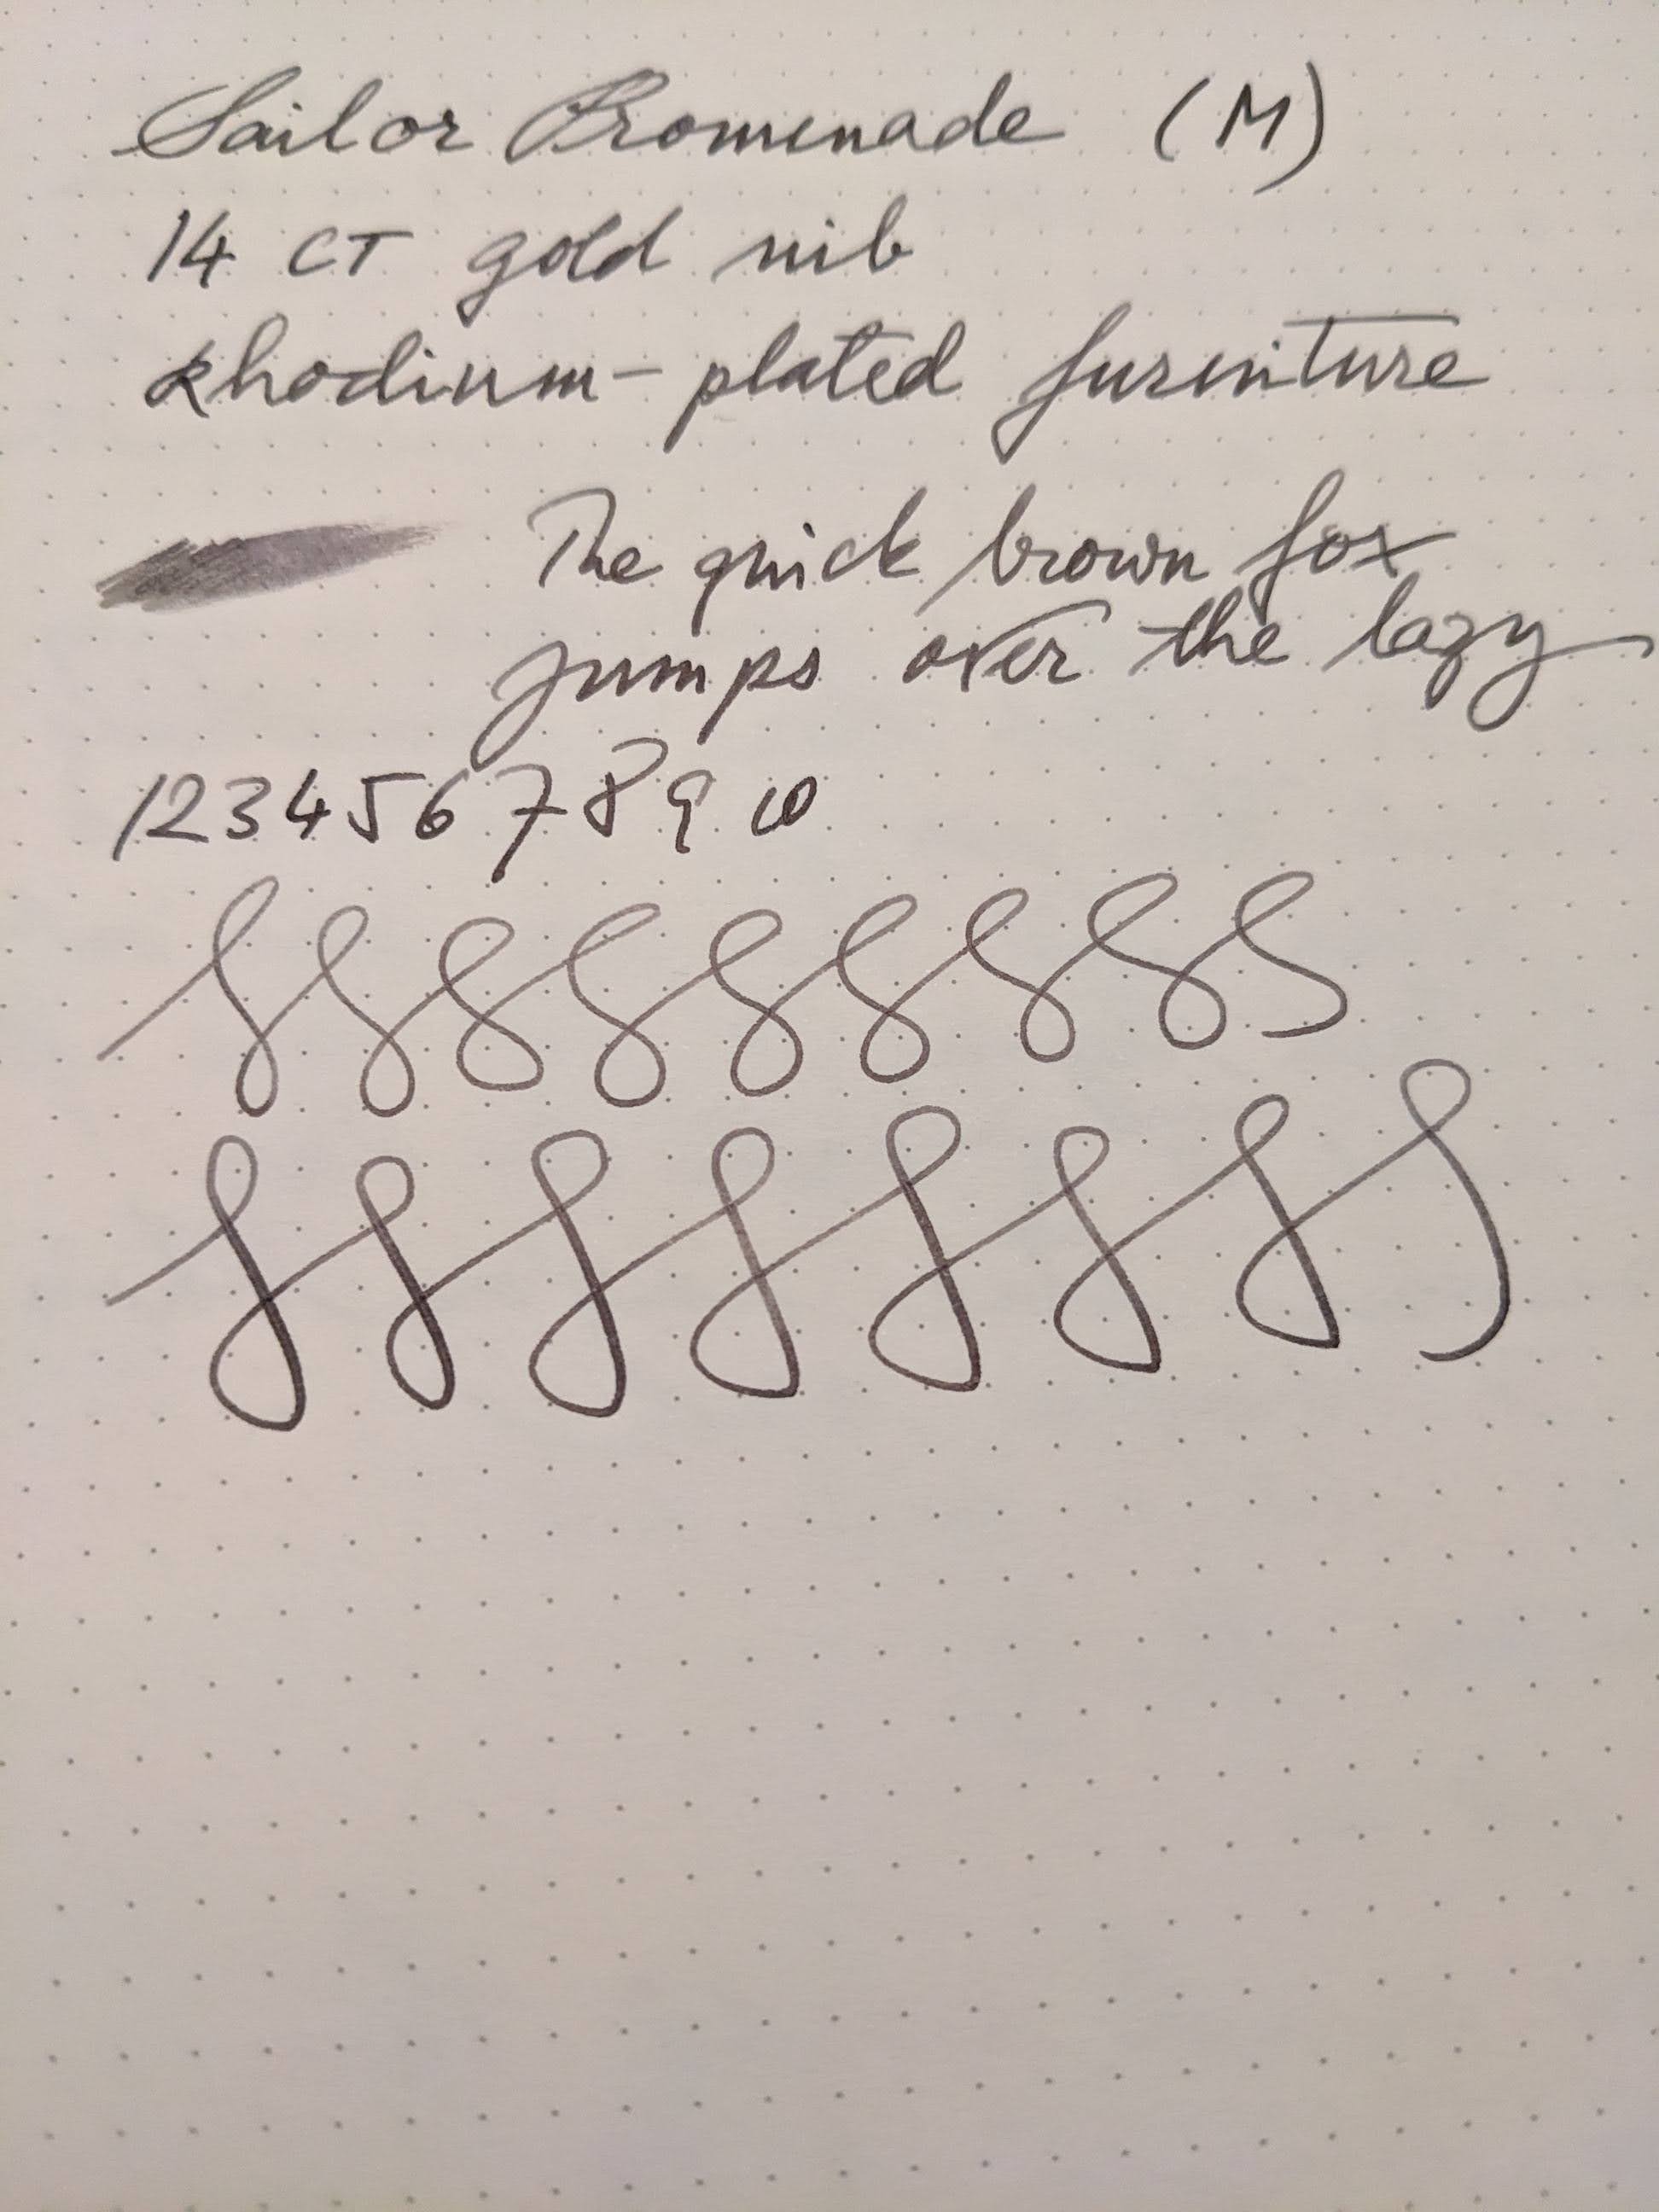 Sailor Promenade (M)
14 CT gold nib
Rhodium-plated furniture
The quick brown fox
jumps over the lazy
1 2 3 4 5 6 7 8 9 10